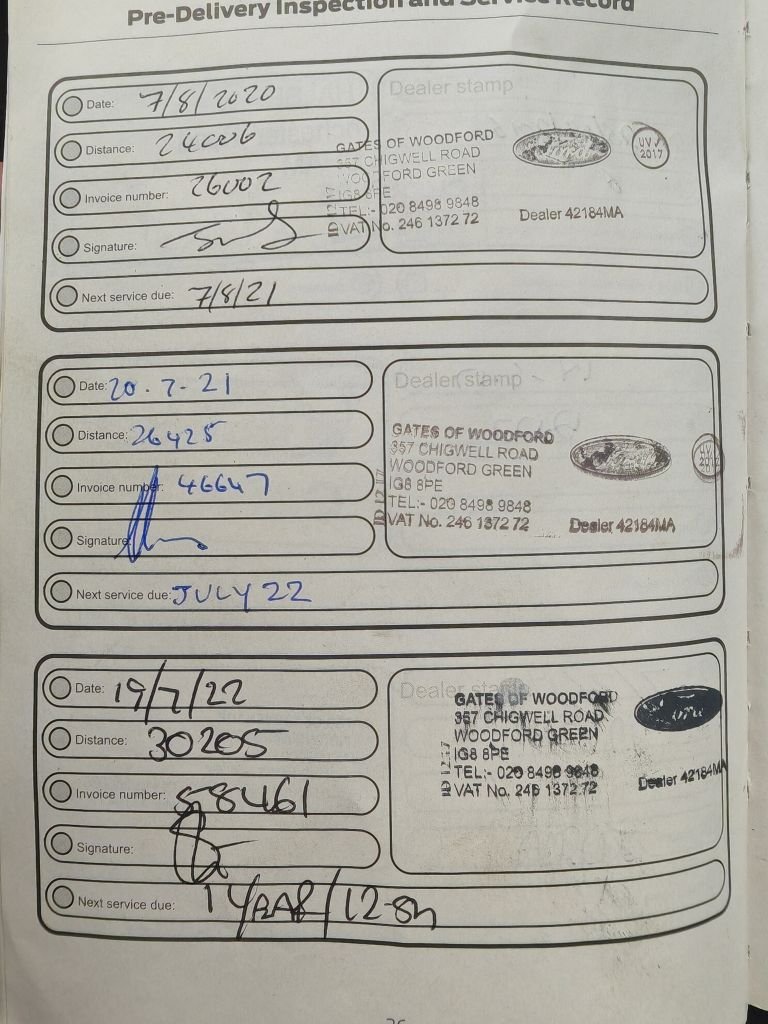 Pre-Delivery Inspection and Service Record
Date: 7/8/2020
Distance: 24006
Invoice number: 26002
Signature:
Next service due: 7/8/21
Dealer stamp
GATES OF WOODFORD
357 CHIGWELL ROAD
WOODFORD GREEN
IG8 8PE
TEL:- 020 8498 9848
VAT No. 246 1372 72
UV
2017
Dealer 42184MA
Date: 20.7.21
Distance: 26425
Invoice number: 46647
Signature
Next service due: JULY 22
Dealer stamp
GATES OF WOODFORD
357 CHIGWELL ROAD
WOODFORD GREEN
IG8 8PE
TEL:- 020 8498 9848
VAT No. 246 1372 72
Dealer 42184MA
Date: 19/7/22
Distance: 30205
Invoice number: 58461
Signature:
Next service due:
Dealer stamp
GATES OF WOODFORD
357 CHIGWELL ROAD
WOODFORD GREEN
IG8 8PE
TEL:- 020 8498 9848
VAT No. 246 1372 72
Ford
Dealer 42184MA